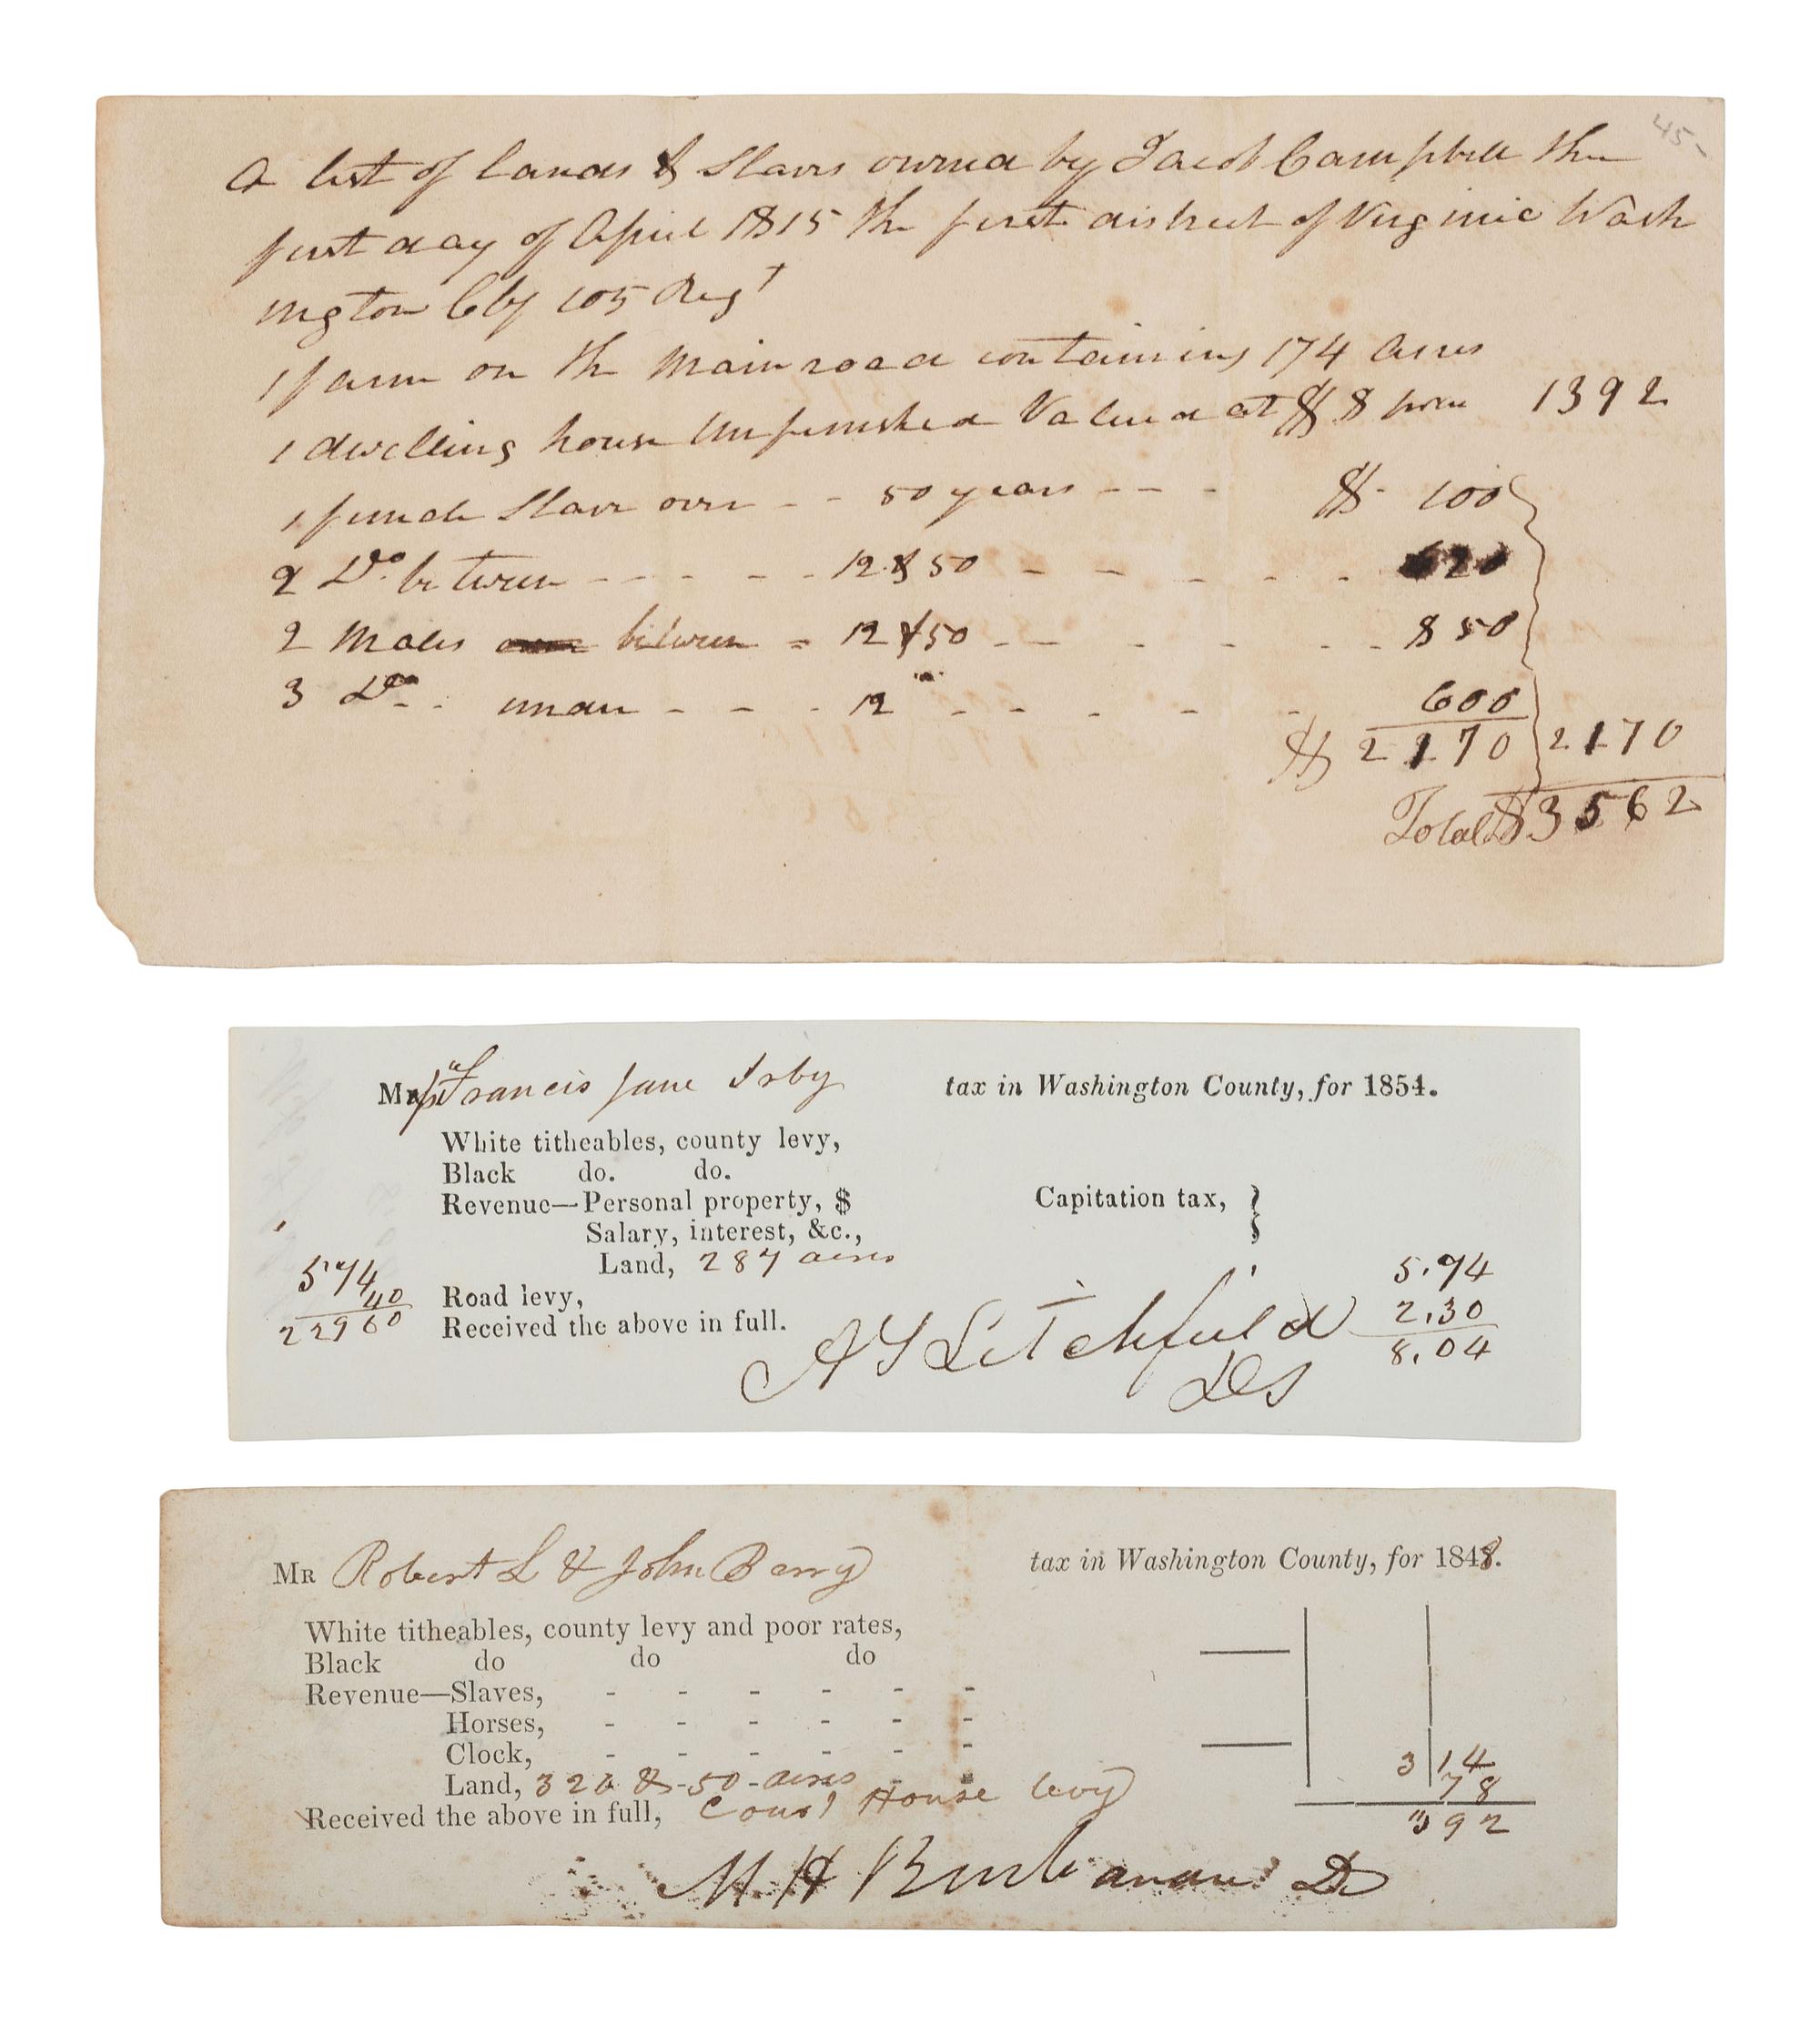 45-
A list of lands & Slaves owned by Jacob Campbell the
first day of April 1815 the first district of Virginia Wash
ington Cty 105 Regt
1 farm on the Main road containing 174 acres
1 dwelling house Unfinished Valued at $ 8 pr 1392
1 female Slave over - - 50 years - - - $ - 100
2 Do. between - - - - - 12 & 50 - - - - - - 620
2 Males between - 12 & 50 - - - - - - 850
3 Do - - under - - - 12 - - - - - 600
$ 2170 2170
Total $ 3562
Mrs Francis Jane Irby tax in Washington County, for 1854.
White titheables, county levy,
Black do. do.
Revenue—Personal property, $ Capitation tax, }
Salary, interest, &c.,
Land, 287 acres
574 5.74
40 Road levy, 2.30
22960 Received the above in full. 8.04
A G Litchfield
DS
Mr Robert L & John Berry tax in Washington County, for 1848.
White titheables, county levy and poor rates,
Black do do do
Revenue—Slaves, - - - - - -
Horses, - - - - - -
Clock, - - - - - -
Land, 326 & 50 acres 3 14
Received the above in full, Court House levy 78
3 92
M H Buchanan D